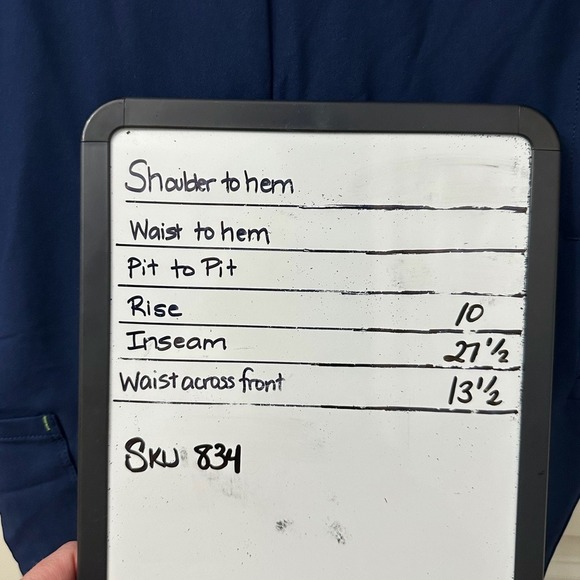 Shoulder to hem
Waist to hem
Pit to Pit
Rise 10
Inseam 27 1/2
Waist across front 13 1/2
SKU 834